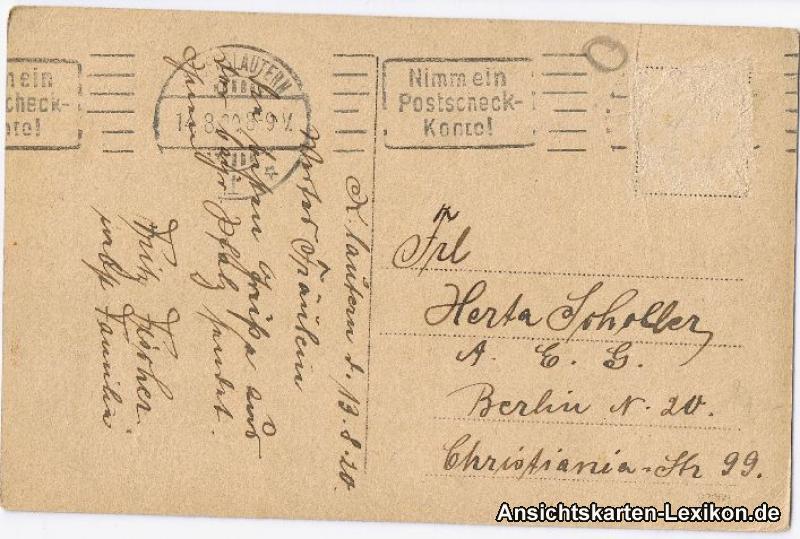 m ein
scheck-
nto!
LAUTERN
14.8.20.8-9 V.
Nimm ein
Postscheck-
Konto!
K.lautern d. 13.8.20.
Wertes Fräulein
Grüße aus
Pfalz sendet.
Ihnen
Fritz Fischer.
Familie
Frl
Herta Scholler,
A. E. G.
Berlin N. 20.
Christiania-Str 99.
Ansichtskarten-Lexikon.de